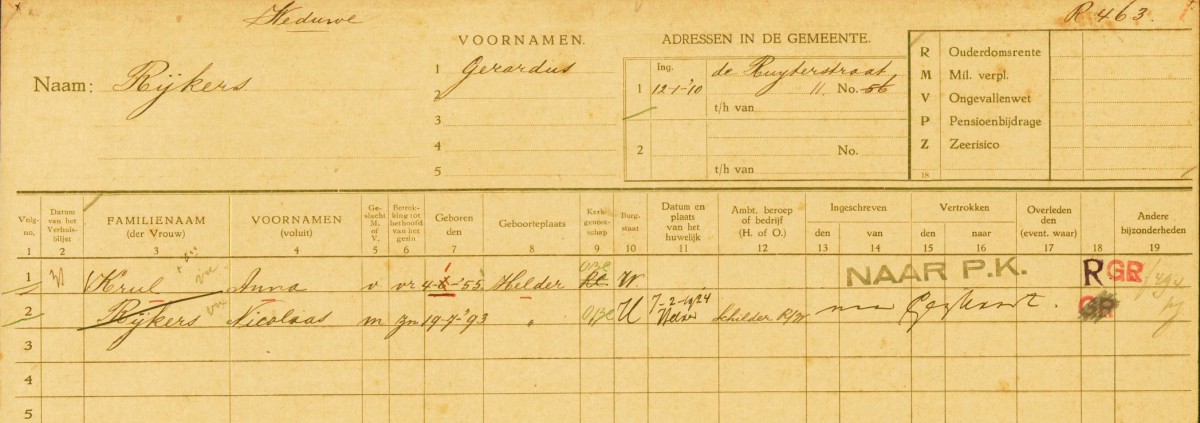 Weduwe
R 463.
Naam: Rijkers
VOORNAMEN.
1 Gerardus
2
3
4
5
ADRESSEN IN DE GEMEENTE.
Ing.
1 12-1-'10 de Ruyterstraat
11. No. 56
t/h van
2 No.
t/h van
R Ouderdomsrente
M Mil. verpl.
V Ongevallenwet
P Pensioenbijdrage
Z Zeerisico
18
Volg-no. Datum van het Verhuis-biljet FAMILIENAAM (der Vrouw) VOORNAMEN (voluit) Ge-slacht M. of V. Betrek-king tot het hoofd van het gezin Geboren den Geboorteplaats Kerk-genoot-schap Burg. staat Datum en plaats van het huwelijk Ambt. beroep of bedrijf (H. of O.) Ingeschreven Vertrokken Overleden den (event. waar) Andere bijzonderheden
den van den naar
1 2 3 4 5 6 7 8 9 10 11 12 13 14 15 16 17 18 19
1 Krul Anna v vr 4-1-'55 Helder RC W. NAAR P.K. R GR
2 Rijkers Nicolaas m zn 19-7-'93 " U 7-2-1924 Schilder GR
3
4
5